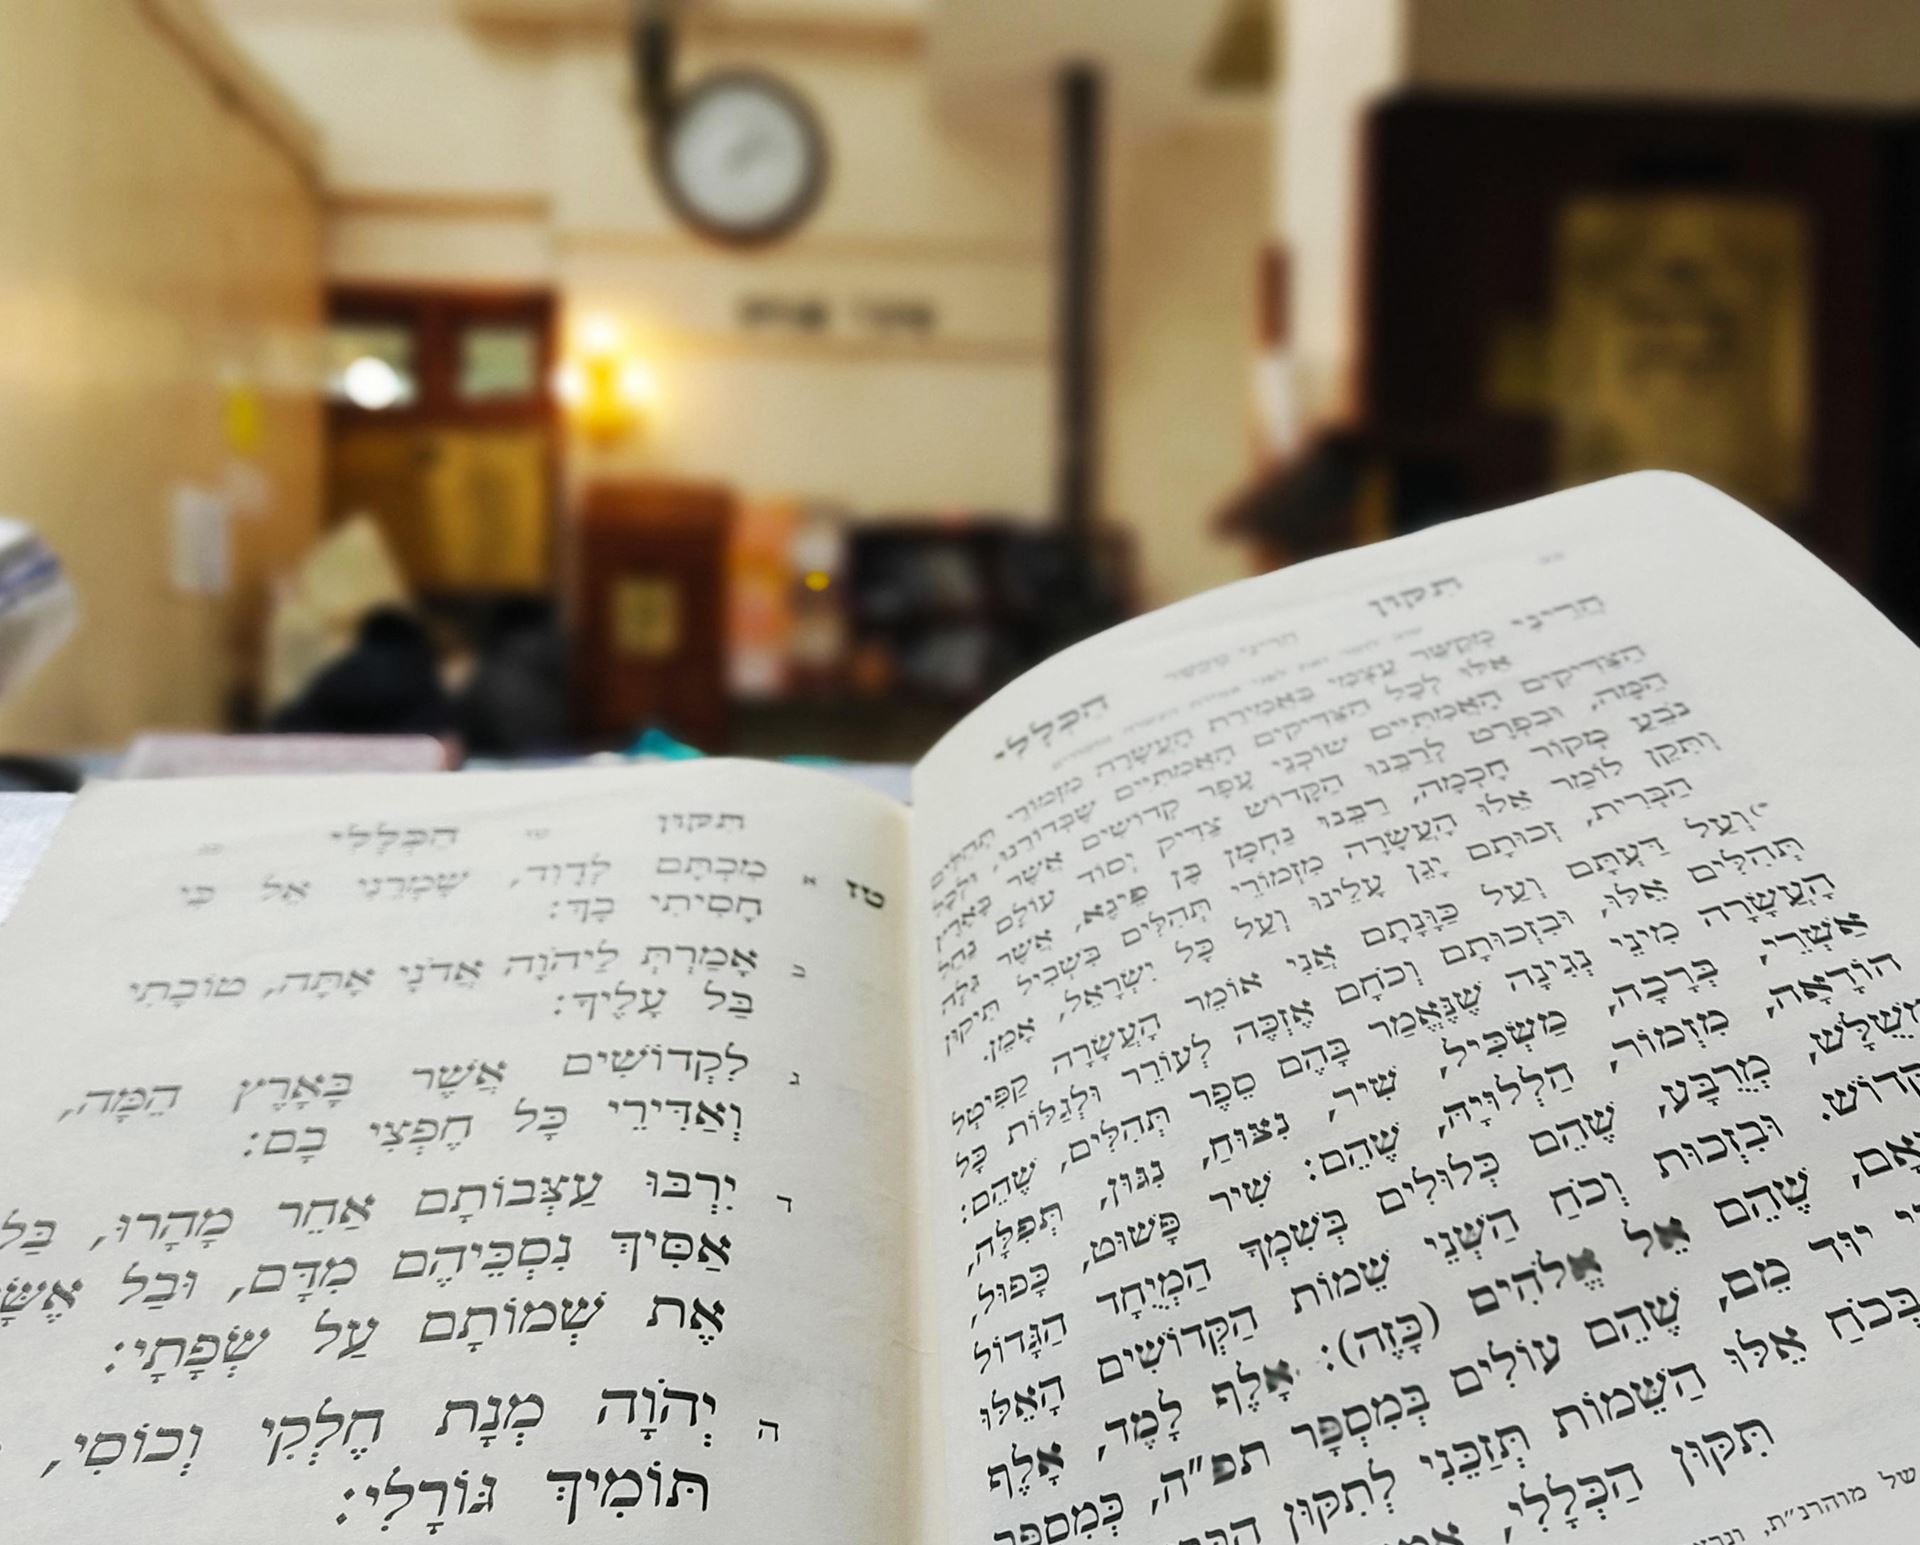 תקון הכללי
הריני מקשר
הֲרֵינִי מְקַשֵּׁר עַצְמִי בַּאֲמִירַת הָעֲשָׂרָה מִזְמוֹרֵי תְּהִלִּים
אֵלּוּ לְכָל הַצַּדִּיקִים הָאֲמִתִּיִּים שֶׁבְּדוֹרֵנוּ, וּלְכָל
הַצַּדִּיקִים הָאֲמִתִּיִּים שׁוֹכְנֵי עָפָר קְדוֹשִׁים אֲשֶׁר בָּאָרֶץ
הֵמָּה, וּבִפְרָט לְרַבֵּנוּ הַקָּדוֹשׁ צַדִּיק יְסוֹד עוֹלָם נַחַל
נֹבֵעַ מְקוֹר חָכְמָה, רַבֵּנוּ נַחְמָן בֶּן פֵיגֶא, אֲשֶׁר גִּלָּה
וְתִקֵּן לוֹמַר אֵלּוּ הָעֲשָׂרָה מִזְמוֹרֵי תְּהִלִּים בִּשְׁבִיל תִּיקּוּן
הַבְּרִית, זְכוּתָם יָגֵן עָלֵינוּ וְעַל כָּל יִשְׂרָאֵל, אָמֵן.
וְעַל דַּעְתָּם וְעַל כַּוָּנָתָם אֲנִי אוֹמֵר הָעֲשָׂרָה קַפִּיטְל
תְּהִלִּים אֵלּוּ, וּבִזְכוּתָם וְכֹחָם אֶזְכֶּה לְעוֹרֵר וּלְגַלּוֹת כָּל
הָעֲשָׂרָה מִינֵי נְגִינָה שֶׁנֶּאֱמַר בָּהֶם סֵפֶר תְּהִלִּים, שֶׁהֵם:
אַשְׁרֵי, בְּרָכָה, מַשְׂכִּיל, שִׁיר, נִצּוּחַ, נִגּוּן, תְּפִלָּה,
הוֹדָאָה, מִזְמוֹר, הַלְלוּיָהּ, שֶׁהֵם: שִׁיר פָּשׁוּט, כָּפוּל,
מְשֻׁלָּשׁ, מְרֻבָּע, שֶׁהֵם כְּלוּלִים בְּשִׁמְךָ הַמְיֻחָד הַגָּדוֹל
וּבִזְכוּת וְכֹחַ הַשְּׁנֵי שֵׁמוֹת הַקְּדוֹשִׁים הָאֵלּוּ
שֶׁהֵם אֵל אֱלֹהִים (כָּזֶה): אָלֶף לָמֶד, אָלֶף
יוּד מֵם, שֶׁהֵם עוֹלִים בְּמִסְפָּר תפ"ה, כְּמִסְפַּר
בְּכֹחַ אֵלּוּ הַשֵּׁמוֹת תְּזַכֵּנִי לְתִקּוּן
תִּקּוּן הַכְּלָלִי,
של מוהרנ"ת,
תקון הכללי
טז א מִכְתָּם לְדָוִד, שָׁמְרֵנִי אֵל כִּי
חָסִיתִי בָךְ:
ב אָמַרְתְּ לַיהֹוָה אֲדֹנָי אָתָּה, טוֹבָתִי
בַּל עָלֶיךָ:
ג לִקְדוֹשִׁים אֲשֶׁר בָּאָרֶץ הֵמָּה,
וְאַדִּירֵי כָּל חֶפְצִי בָם:
ד יִרְבּוּ עַצְּבוֹתָם אַחֵר מָהָרוּ, בַּל
אַסִּיךְ נִסְכֵּיהֶם מִדָּם, וּבַל
אֶת שְׁמוֹתָם עַל שְׂפָתָי:
ה יְהֹוָה מְנָת חֶלְקִי וְכוֹסִי,
תּוֹמִיךְ גּוֹרָלִי: